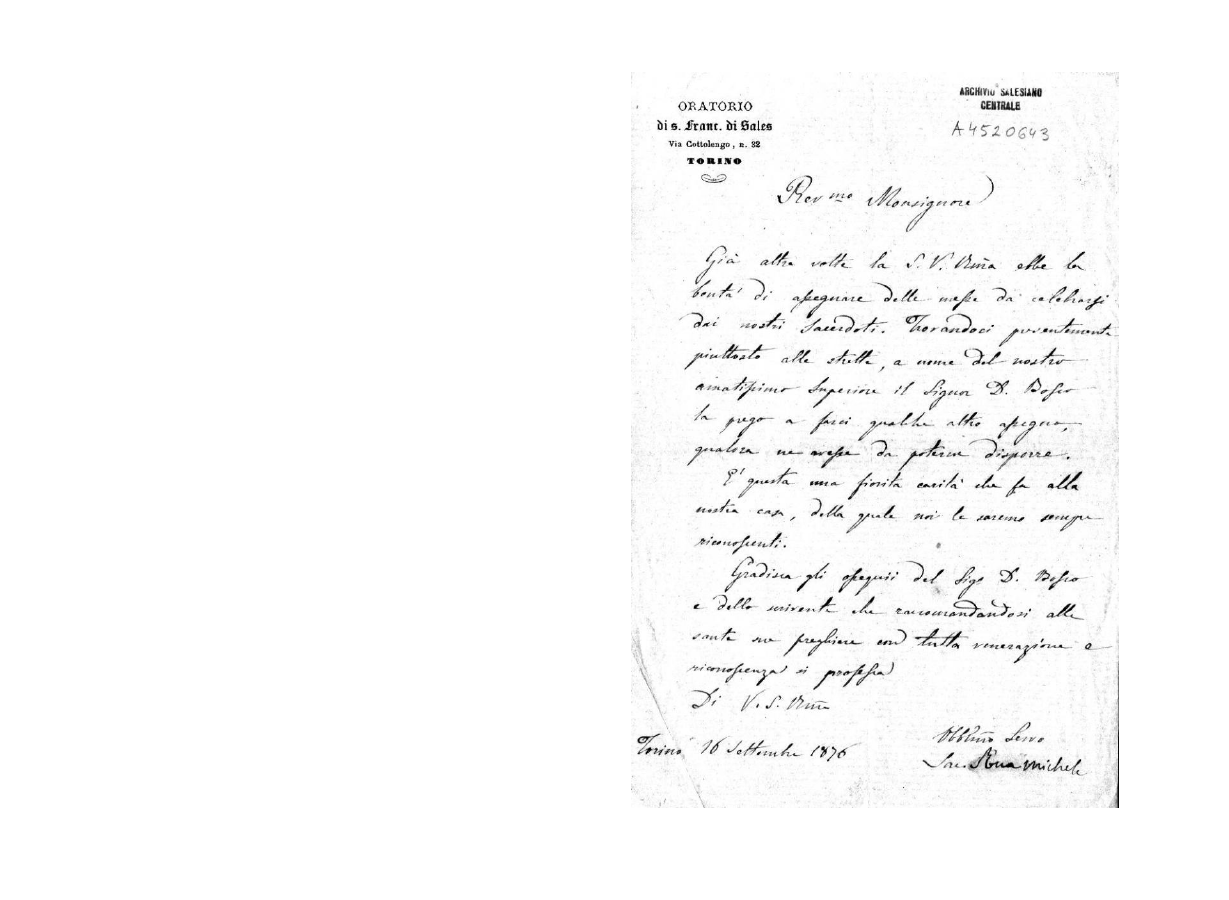 ORATORIO
di s. Franc. di Sales
Via Cottolengo, n. 32
TORINO
ARCHIVIO SALESIANO
CENTRALE
A4520643
Rev.mo Monsignore
Già altre volte la S. V. Rma ebbe la
bontà di assegnare delle messe da celebrarsi
dai nostri Sacerdoti. Trovandoci presentemente
piuttosto alle strette, a nome del nostro
amatissimo Superiore il Signor D. Bosco
la prego a farci qualche altro assegno,
qualora ne avesse da poterne disporre.
E' questa una fiorita carità che fa alla
nostra casa, della quale noi le saremo sempre
riconoscenti.
Gradisca gli ossequii del Sigr D. Bosco
e dello scrivente che raccomandandosi alle
sante sue preghiere con tutta venerazione e
riconoscenza si professa
Di V. S. Rma
Obblmo Servo
Torino 16 Settembre 1876
Sac. Rua Michele